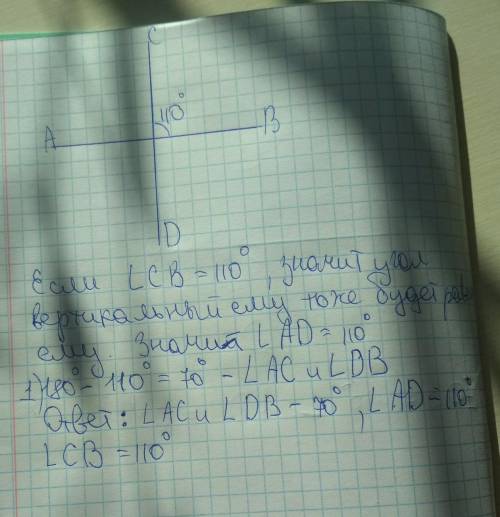 C
110°
A
B
D
Если ∠CB = 110°, значит угол
вертикальный ему тоже будет рав
ему. Значит ∠AD = 110°
1) 180° - 110° = 70° - ∠AC и ∠DB
Ответ: ∠AC и ∠DB - 70°, ∠AD = 110°
∠CB = 110°